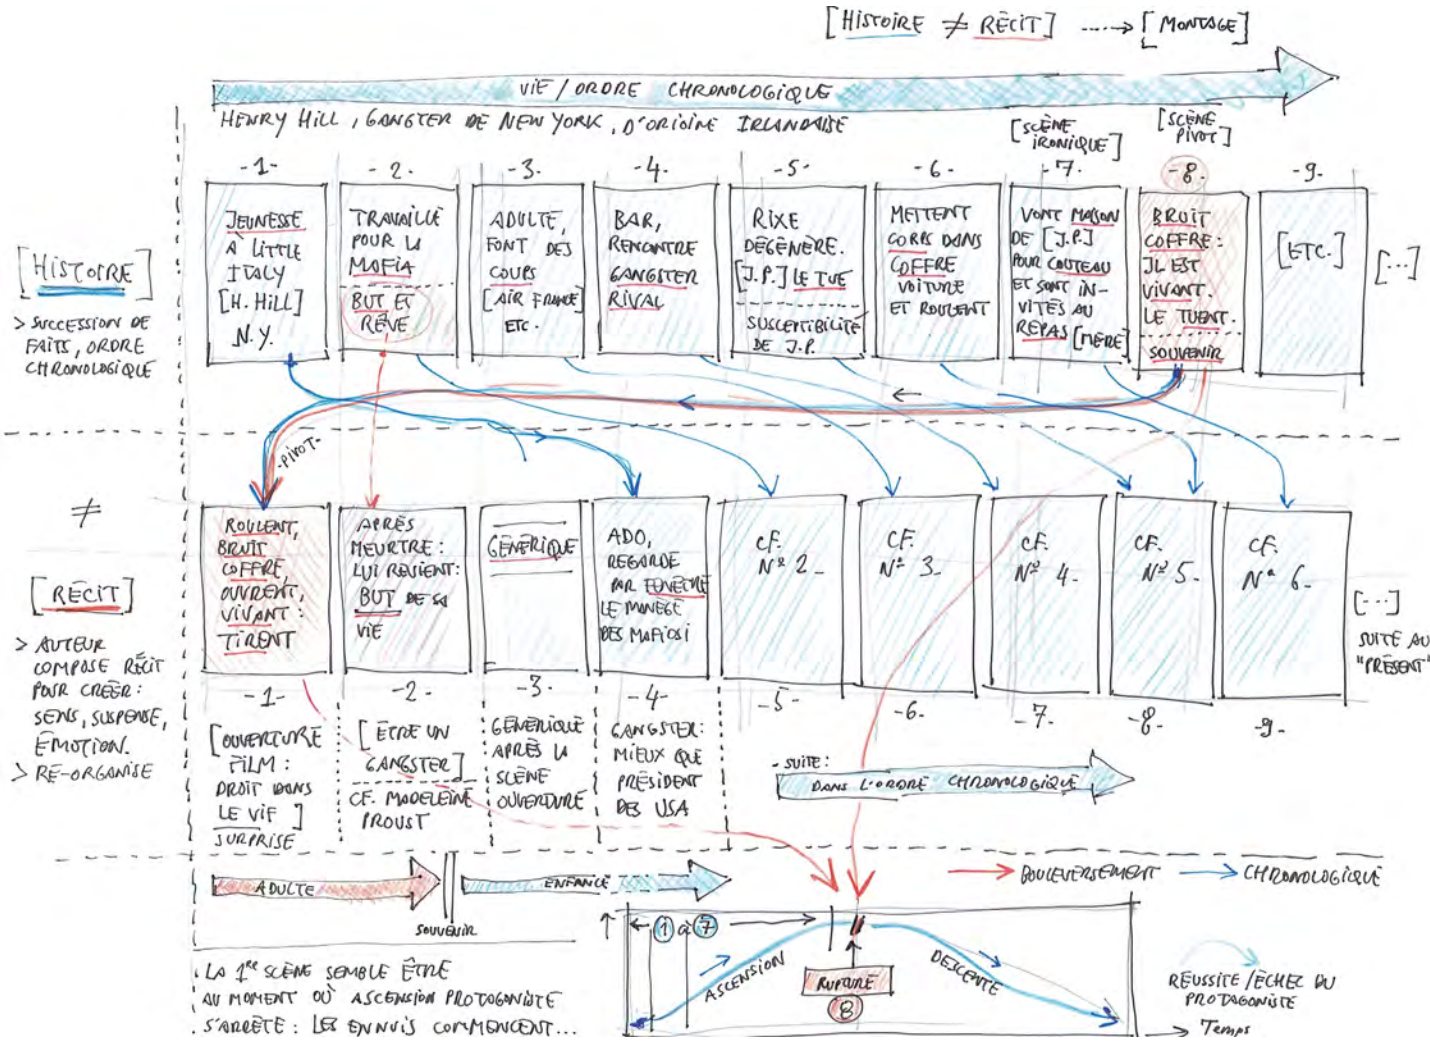 [HISTOIRE ≠ RÉCIT] ----> [MONTAGE]
VIE / ORDRE CHRONOLOGIQUE
HENRY HILL, GANGSTER DE NEW YORK, D'ORIGINE IRLANDAISE
[SCÈNE
IRONIQUE]
[SCÈNE
PIVOT]
-1-
-2.
-3.
-4.
-5-
-6.
-7.
-8.
-9.
[HISTOIRE]
> SUCCESSION DE
FAITS, ORDRE
CHRONOLOGIQUE
JEUNESSE
À LITTLE
ITALY
[H. HILL]
N.Y.
TRAVAILLE
POUR LA
MAFIA
BUT ET
RÊVE
ADULTE,
FONT DES
COUPS
[AIR FRANCE]
ETC.
BAR,
RENCONTRE
GANGSTER
RIVAL
RIXE
DÉGÉNÈRE.
[J.P.] LE TUE
SUSCEPTIBILITÉ
DE J.P.
METTENT
CORPS DANS
COFFRE
VOITURE
ET ROULENT
VONT MAISON
DE [J.P.]
POUR COUTEAU
ET SONT IN-
VITÉS AU
REPAS [MÈRE]
BRUIT
COFFRE:
IL EST
VIVANT.
LE TUENT.
SOUVENIR
[ETC.]
[...]
-PIVOT-
≠
[RÉCIT]
> AUTEUR
COMPOSE RÉCIT
POUR CRÉER:
SENS, SUSPENSE,
ÉMOTION.
> RÉ-ORGANISE
ROULENT,
BRUIT
COFFRE,
OUVRENT,
VIVANT:
TIRENT
APRÈS
MEURTRE:
LUI REVIENT:
BUT DE SA
VIE
GÉNÉRIQUE
ADO,
REGARDE
PAR FENÊTRE
LE MANÈGE
DES MAFIOSI
CF.
Nº 2_
CF.
Nº 3_
CF.
Nº 4_
CF.
Nº 5_
CF.
Nº 6_
[...]
SUITE AU
"PRÉSENT"
-1-
-2-
-3-
-4-
-5-
-6-
-7-
-8-
-9-
[OUVERTURE
FILM:
DROIT DANS
LE VIF]
SURPRISE
[ÊTRE UN
GANGSTER]
CF. MADELEINE
PROUST
GÉNÉRIQUE
APRÈS LA
SCÈNE
OUVERTURE
GANGSTER:
MIEUX QUE
PRÉSIDENT
DES USA
- SUITE:
DANS L'ORDRE CHRONOLOGIQUE
ADULTE
SOUVENIR
ENFANCE
BOULEVERSEMENT
CHRONOLOGIQUE
. LA 1RE SCÈNE SEMBLE ÊTRE
AU MOMENT OÙ ASCENSION PROTAGONISTE
S'ARRÊTE: LES ENNUIS COMMENCENT...
1 à 7
ASCENSION
RUPTURE
8
DESCENTE
RÉUSSITE/ÉCHEC DU
PROTAGONISTE
Temps